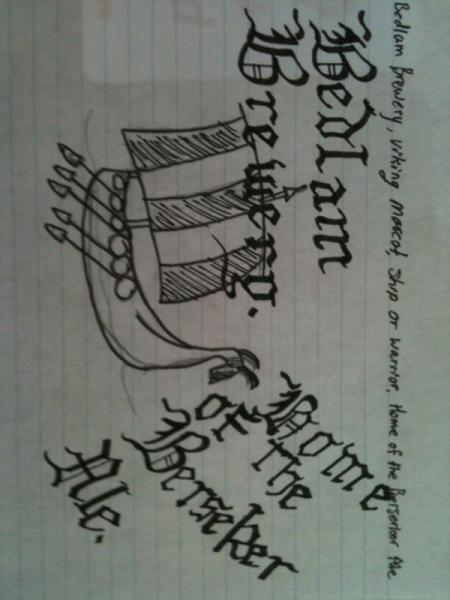 Bedlam Brewery, viking mascot, ship or warrior, Home of the Berserker Ale
Bedlam
Brewery.
Home
of the
Berseker
Ale.